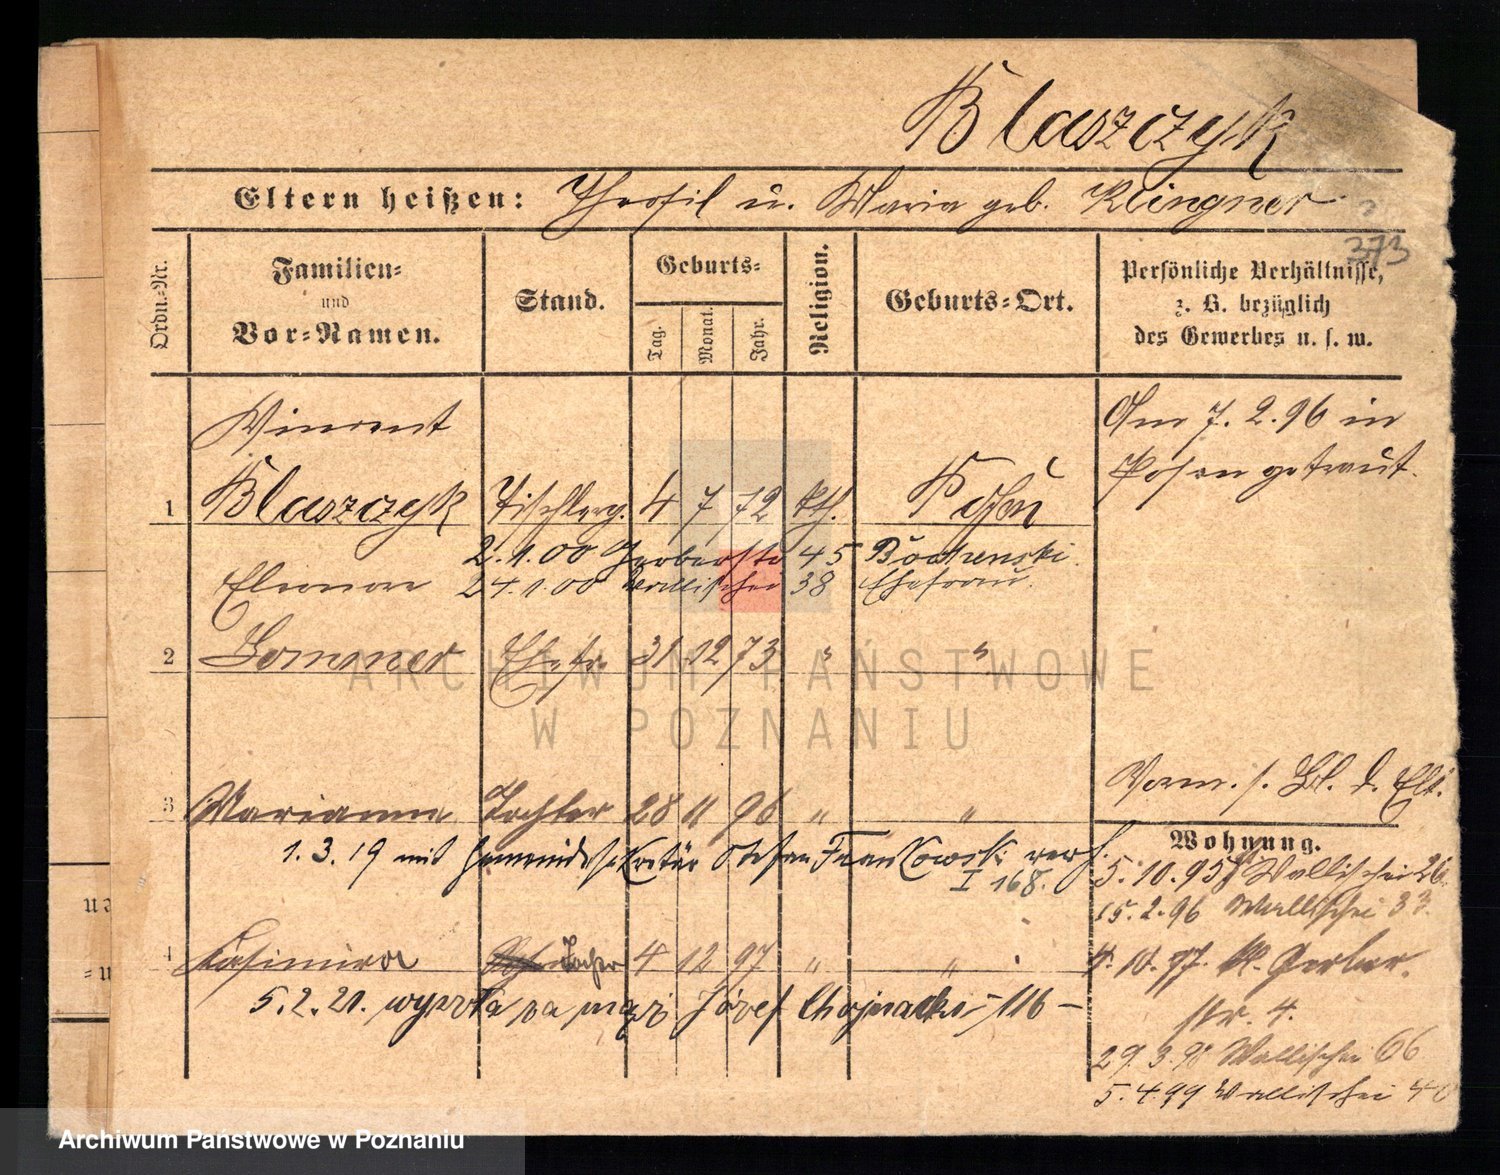 Blaszczyk
Eltern heißen: Theofil u. Maria geb. Klingner
373
Ordn.=Nr.
Familien=
und
Vor=Namen.
Stand.
Geburts=
Tag.
Monat.
Jahr.
Religion.
Geburts=Ort.
Persönliche Verhältnisse,
z. B. bezüglich
des Gewerbes u. s. w.
Vincent
Am 7. 2. 96 in
Posen getraut.
1 Blaszczyk Tischlerg. 4 7 72 kth. Posen
2.1.00 Gerberstr 45
Eleonore 24.1.00 Wallischei 38 Ehefrau.
2 Ehefr. 31 12 73 " "
Verm. s. Bl. d. Elt.
3 Marianna Tochter 28 11 96 " "
1.3.19 mit Gemeindesekretär Stefan Frankowski verh.
I 168.
Wohnung.
5.10.95 Wallischei 26
15.2.96 Wallischei 33.
4 Kasimira Tochter 4 12 97 " "
4.10.97. Kl. Gerber-
str. 4.
5.2.21. wyszła za mąż Józef Chojnacki - 116 -
29.3.98 Wallischei 66
5.4.99 Wallischei 40
en
=u
ARCHIWUM PAŃSTWOWE
W POZNANIU
Archiwum Państwowe w Poznaniu